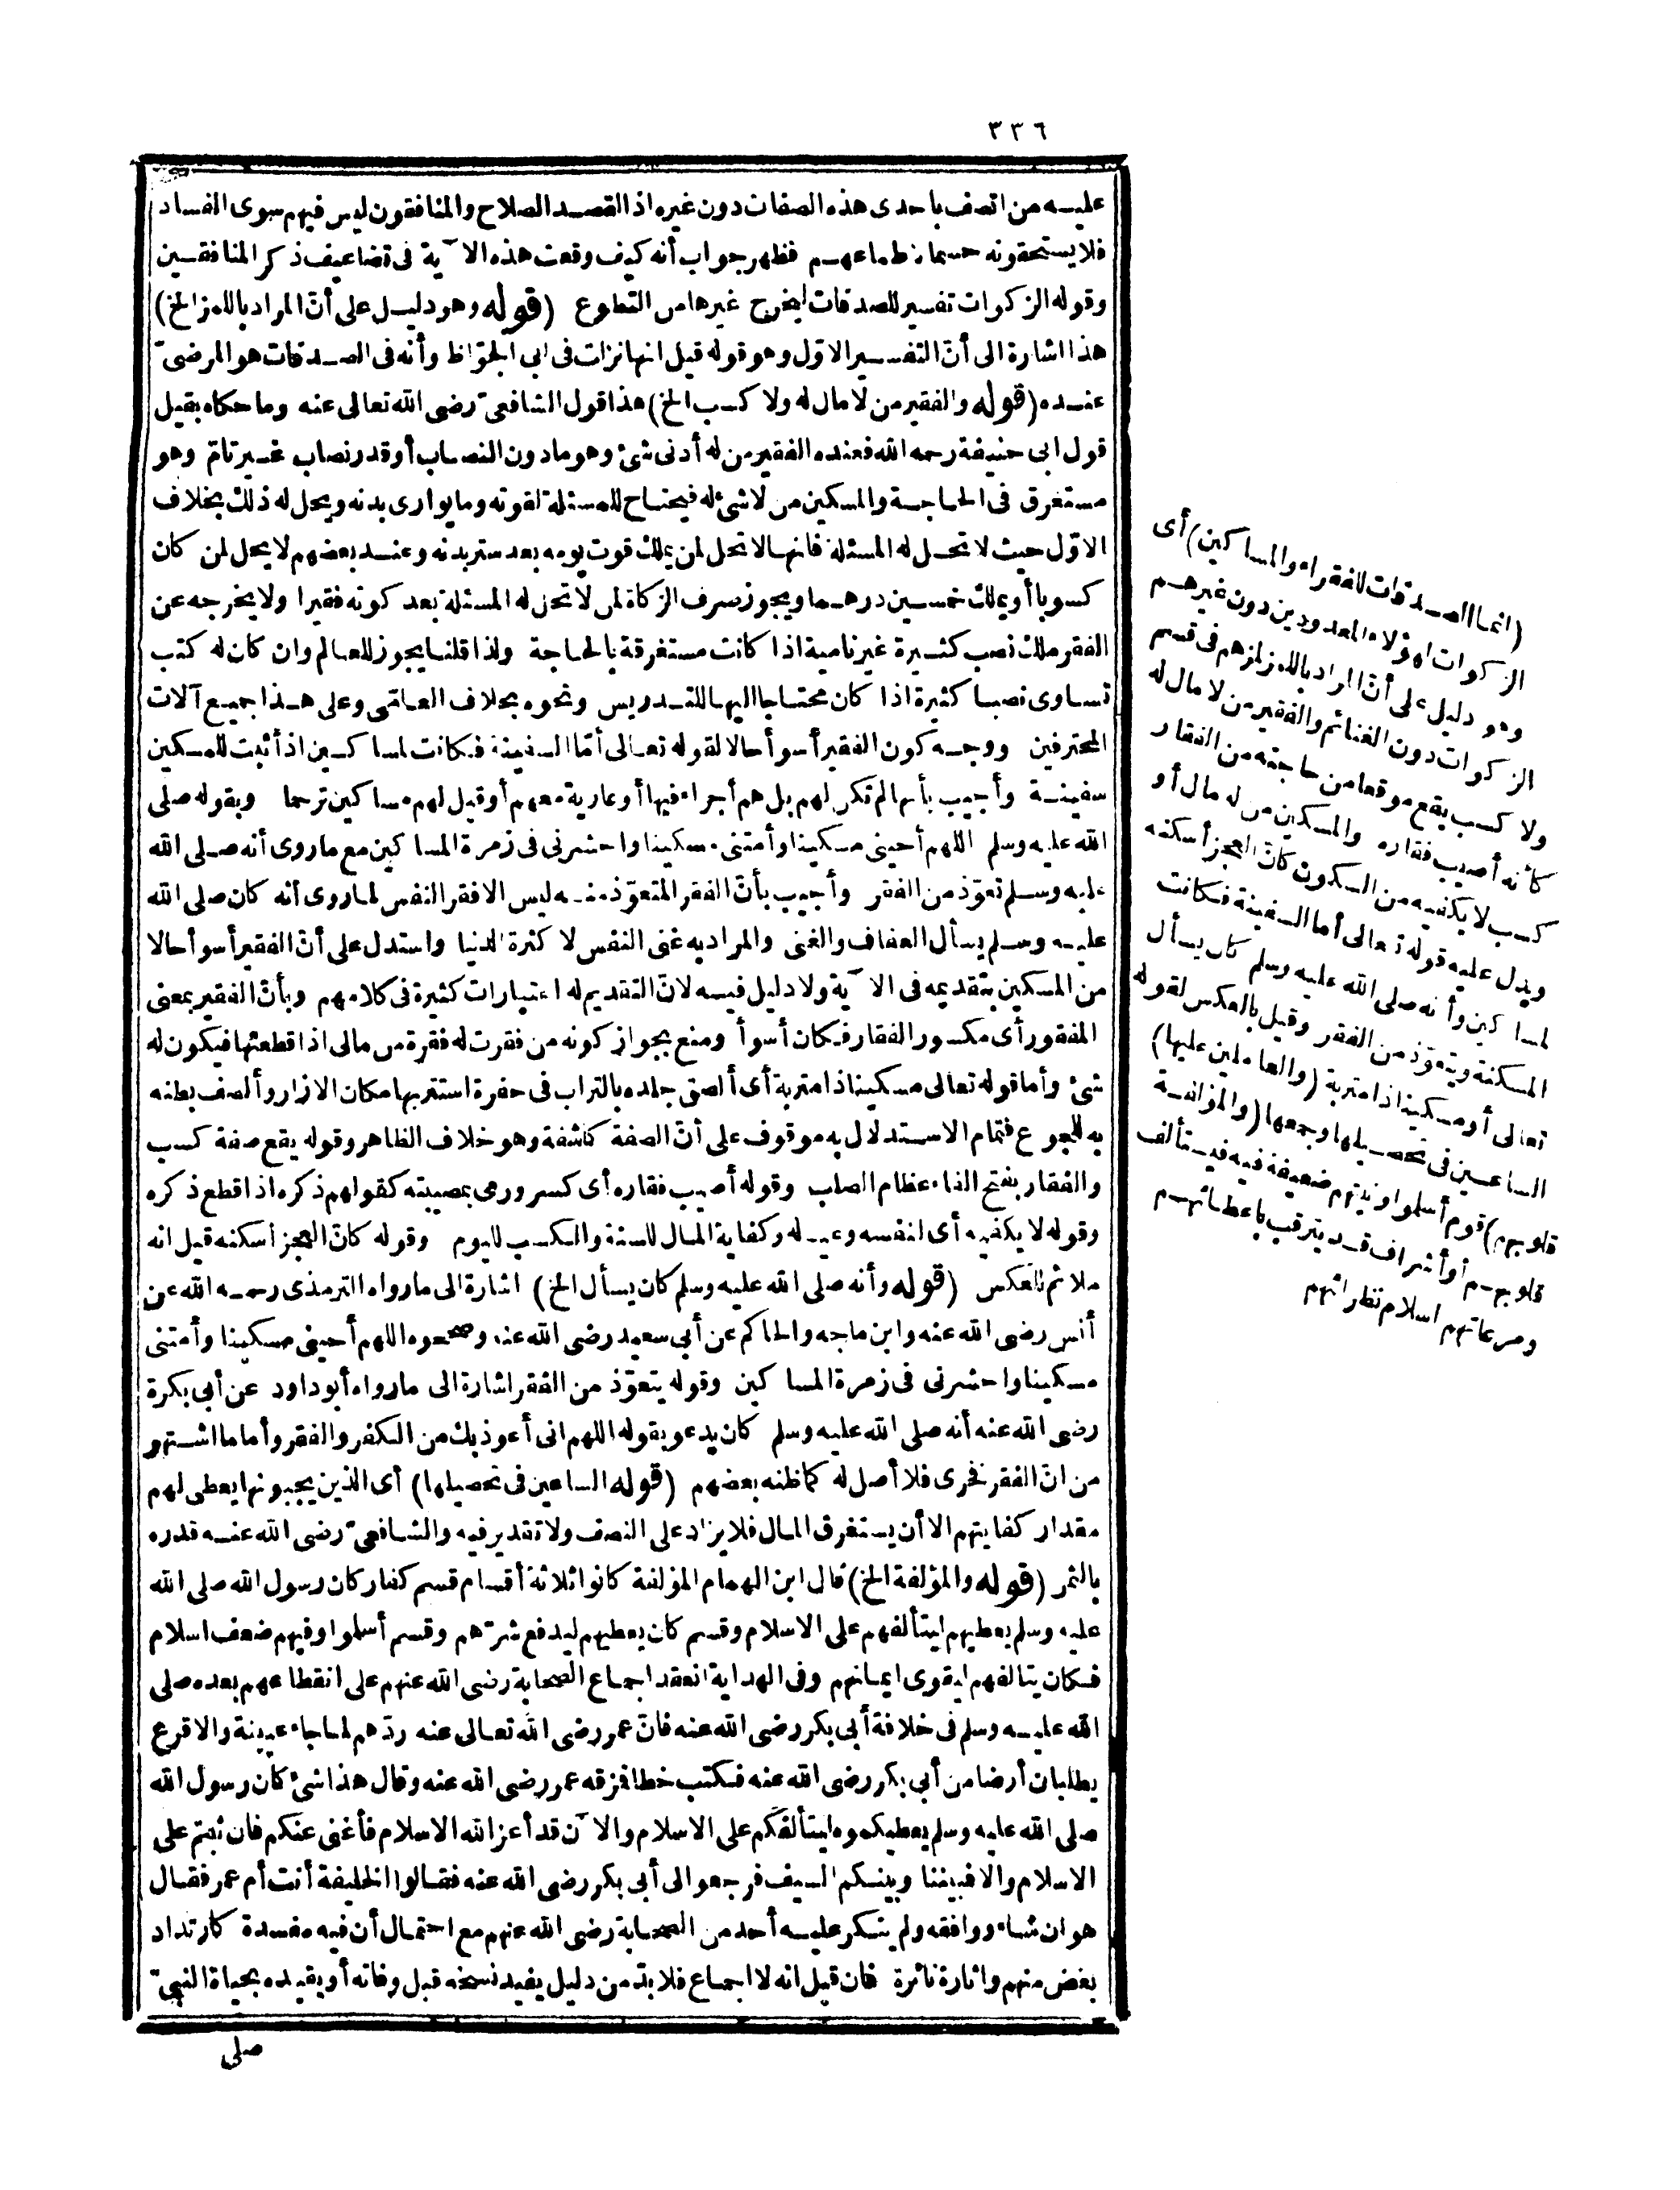 ٣٣٦
عليه من اتصف باحدى هذه الصفات دون غيره اذ القصد الصلاح والمنافقون ليس فيهم سوى الفساد
فلا يستحقونه حسما لاطماعهم فظهر جواب أنه كيف وقعت هذه الآية فى تضاعيف ذكر المنافقين
وقوله الزكوات تفسير للصدقات ليخرج غيرها من التطوع (قوله وهو دليل على أنّ المراد باللمز الخ)
هذا اشارة الى أنّ التفسير الاوّل وهو قوله قيل انها نزلت فى ابى الجوّاظ وأنه فى الصدقات هو المرضىّ
عنده (قوله والفقير من لا مال له ولا كسب الخ) هذا قول الشافعىّ رضى الله تعالى عنه وما حكاه بقيل
قول ابى حنيفة رحمه الله فعنده الفقير من له أدنى شئ وهو ما دون النصاب أو قدر نصاب غير تامّ وهو
مستغرق فى الحاجة والمسكين من لا شئ له فيحتاج للمسئلة لقوته وما يوارى بدنه ويحل له ذلك بخلاف
الاوّل حيث لا تحل له المسئلة فانها لا تحل لمن يملك قوت يومه بعد ستر بدنه وعند بعضهم لا يحل لمن كان
كسوبا أو يملك خمسين درهما ويجوز صرف الزكاة لمن لا تحل له المسئلة بعد كونه فقيرا ولا يخرجه عن
الفقر ملك نصب كثيرة غير نامية اذا كانت مستغرقة بالحاجة ولذا قلنا يجوز للعالم وان كان له كتب
تساوى نصبا كثيرة اذا كان محتاجا اليها للتدريس ونحوه بخلاف العامّى وعلى هذا جميع آلات
المحترفين ووجه كون الفقير أسوأ حالا لقوله تعالى أمّا السفينة فكانت لمساكين اذ أثبت للمسكين
سفينة وأجيب بأنها لم تكن لهم بل هم أجراء فيها أو عارية معهم أو قيل لهم مساكين ترحما وبقوله صلى
الله عليه وسلم اللهم أحينى مسكينا وأمتنى مسكينا واحشرنى فى زمرة المساكين مع ماروى أنه صلى الله
عليه وسلم تعوّذ من الفقر وأجيب بأنّ الفقر المتعوّذ منه ليس الا فقر النفس لماروى أنه كان صلى الله
عليه وسلم يسأل العفاف والغنى والمراد به غنى النفس لا كثرة الدنيا واستدل على أنّ الفقير أسوأ حالا
من المسكين بتقديمه فى الآية ولا دليل فيه لانّ التقديم له اعتبارات كثيرة فى كلامهم وبأنّ الفقير بمعنى
المفقور أى مكسور الفقار فكان أسوأ ومنع بجواز كونه من فقرت له فقرة من مالى اذا قطعتها فيكون له
شئ وأما قوله تعالى مسكينا ذا متربة أى ألصق جلده بالتراب فى حفرة استتر بها مكان الازار وألصق بطنه
به للجوع فتمام الاستدلال به موقوف على أنّ الصفة كاشفة وهو خلاف الظاهر وقوله يقع صفة كسب
والفقار بفتح الفاء عظام الصلب وقوله أصيب فقاره أى كسر ورمى بمصيبته كقولهم ذكره اذا قطع ذكره
وقوله لا يكفيه أى لنفسه وعياله وكفاية المال للسنة والكسب لليوم وقوله كانّ العجز أسكنه قيل انه
ملائم للعكس (قوله وأنه صلى الله عليه وسلم كان يسأل الخ) اشارة الى ما رواه الترمذى رحمه الله عن
أنس رضى الله عنه وابن ماجه والحاكم عن أبى سعيد رضى الله عنه وصححوه اللهم أحينى مسكينا وأمتنى
مسكينا واحشرنى فى زمرة المساكين وقوله يتعوّذ من الفقر اشارة الى مارواه أبو داود عن أبى بكرة
رضى الله عنه أنه صلى الله عليه وسلم كان يدعو بقوله اللهم انى أعوذ بك من الكفر والفقر وأما ما اشتهر
من انّ الفقر فخرى فلا أصل له كما ظنه بعضهم (قوله الساعين فى تحصيلها) أى الذين يجبونها يعطى لهم
مقدار كفايتهم الا أن يستغرق المال فلا يزاد على النصف ولا تقدير فيه والشافعىّ رضى الله عنه قدره
بالثمن (قوله والمؤلفة الخ) قال ابن الهمام المؤلفة كانوا ثلاثة أقسام قسم كفار كان رسول الله صلى الله
عليه وسلم يعطيهم ليتألفهم على الاسلام وقسم كان يعطيهم ليدفع شرّهم وقسم أسلموا وفيهم ضعف اسلام
فكان يتالفهم ليقوى ايمانهم وفى الهداية انعقد اجماع الصحابة رضى الله عنهم على انقطاعهم بعده صلى
الله عليه وسلم فى خلافة أبى بكر رضى الله عنه فانّ عمر رضى الله تعالى عنه ردّهم لما جاء عيينة والاقرع
يطلبان أرضا من أبى بكر رضى الله عنه فكتب خطا فمزقه عمر رضى الله عنه وقال هذا شئ كان رسول الله
صلى الله عليه وسلم يعطيكموه ليتألفكم على الاسلام والآن قد أعز الله الاسلام فأغنى عنكم فان ثبتم على
الاسلام والا فبيننا وبينكم السيف فرجعوا الى أبى بكر رضى الله عنه فقالوا الخليفة أنت أم عمر فقال
هو ان شاء ووافقه ولم ينكر عليه أحد من الصحابة رضى الله عنهم مع احتمال أن فيه مفسدة كارتداد
بعض منهم واثارة ثائرة فان قيل انه لا اجماع فلا بدّ من دليل يفيد نسخه قبل وفاته أو يقيده بحياة النبىّ
صلى
(انما الصدقات للفقراء والمساكين) أى
الزكوات لهؤلاء المعدودين دون غيرهم
وهو دليل على أنّ المراد باللمز لمزهم فى قسم
الزكوات دون الغنائم والفقير من لا مال له
ولا كسب يقع موقعا من حاجته من الفقار
كأنه أصيب فقاره والمسكين من له مال أو
كسب لا يكفيه من السكون كانّ العجز أسكنه
ويدل عليه قوله تعالى أما السفينة فكانت
لمساكين وأنه صلى الله عليه وسلم كان يسأل
المسكنة ويتعوّذ من الفقر وقيل بالعكس لقوله
تعالى أو مسكينا ذا متربة (والعاملين عليها)
الساعين فى تحصيلها وجمعها (والمؤلفة
قلوبهم) قوم أسلموا ونيتهم ضعيفة فيه فيستألف
قلوبهم أو أشراف قد يترقب باعطائهم
ومرعاتهم اسلام نظرائهم